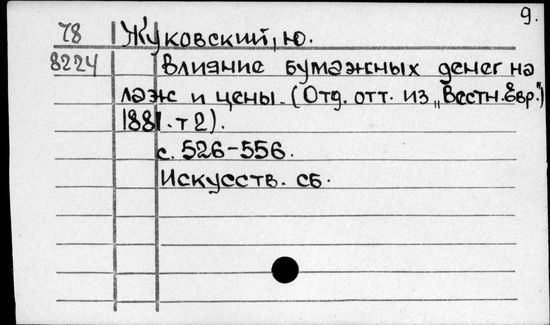 9.
78 Жуковский, Ю.
8224 Влияние бумажных денег на
лаж и цены. (Отд. отт. из „Вестн. Евр.")
1881. т 2).
с. 526-556.
Искусств. сб.